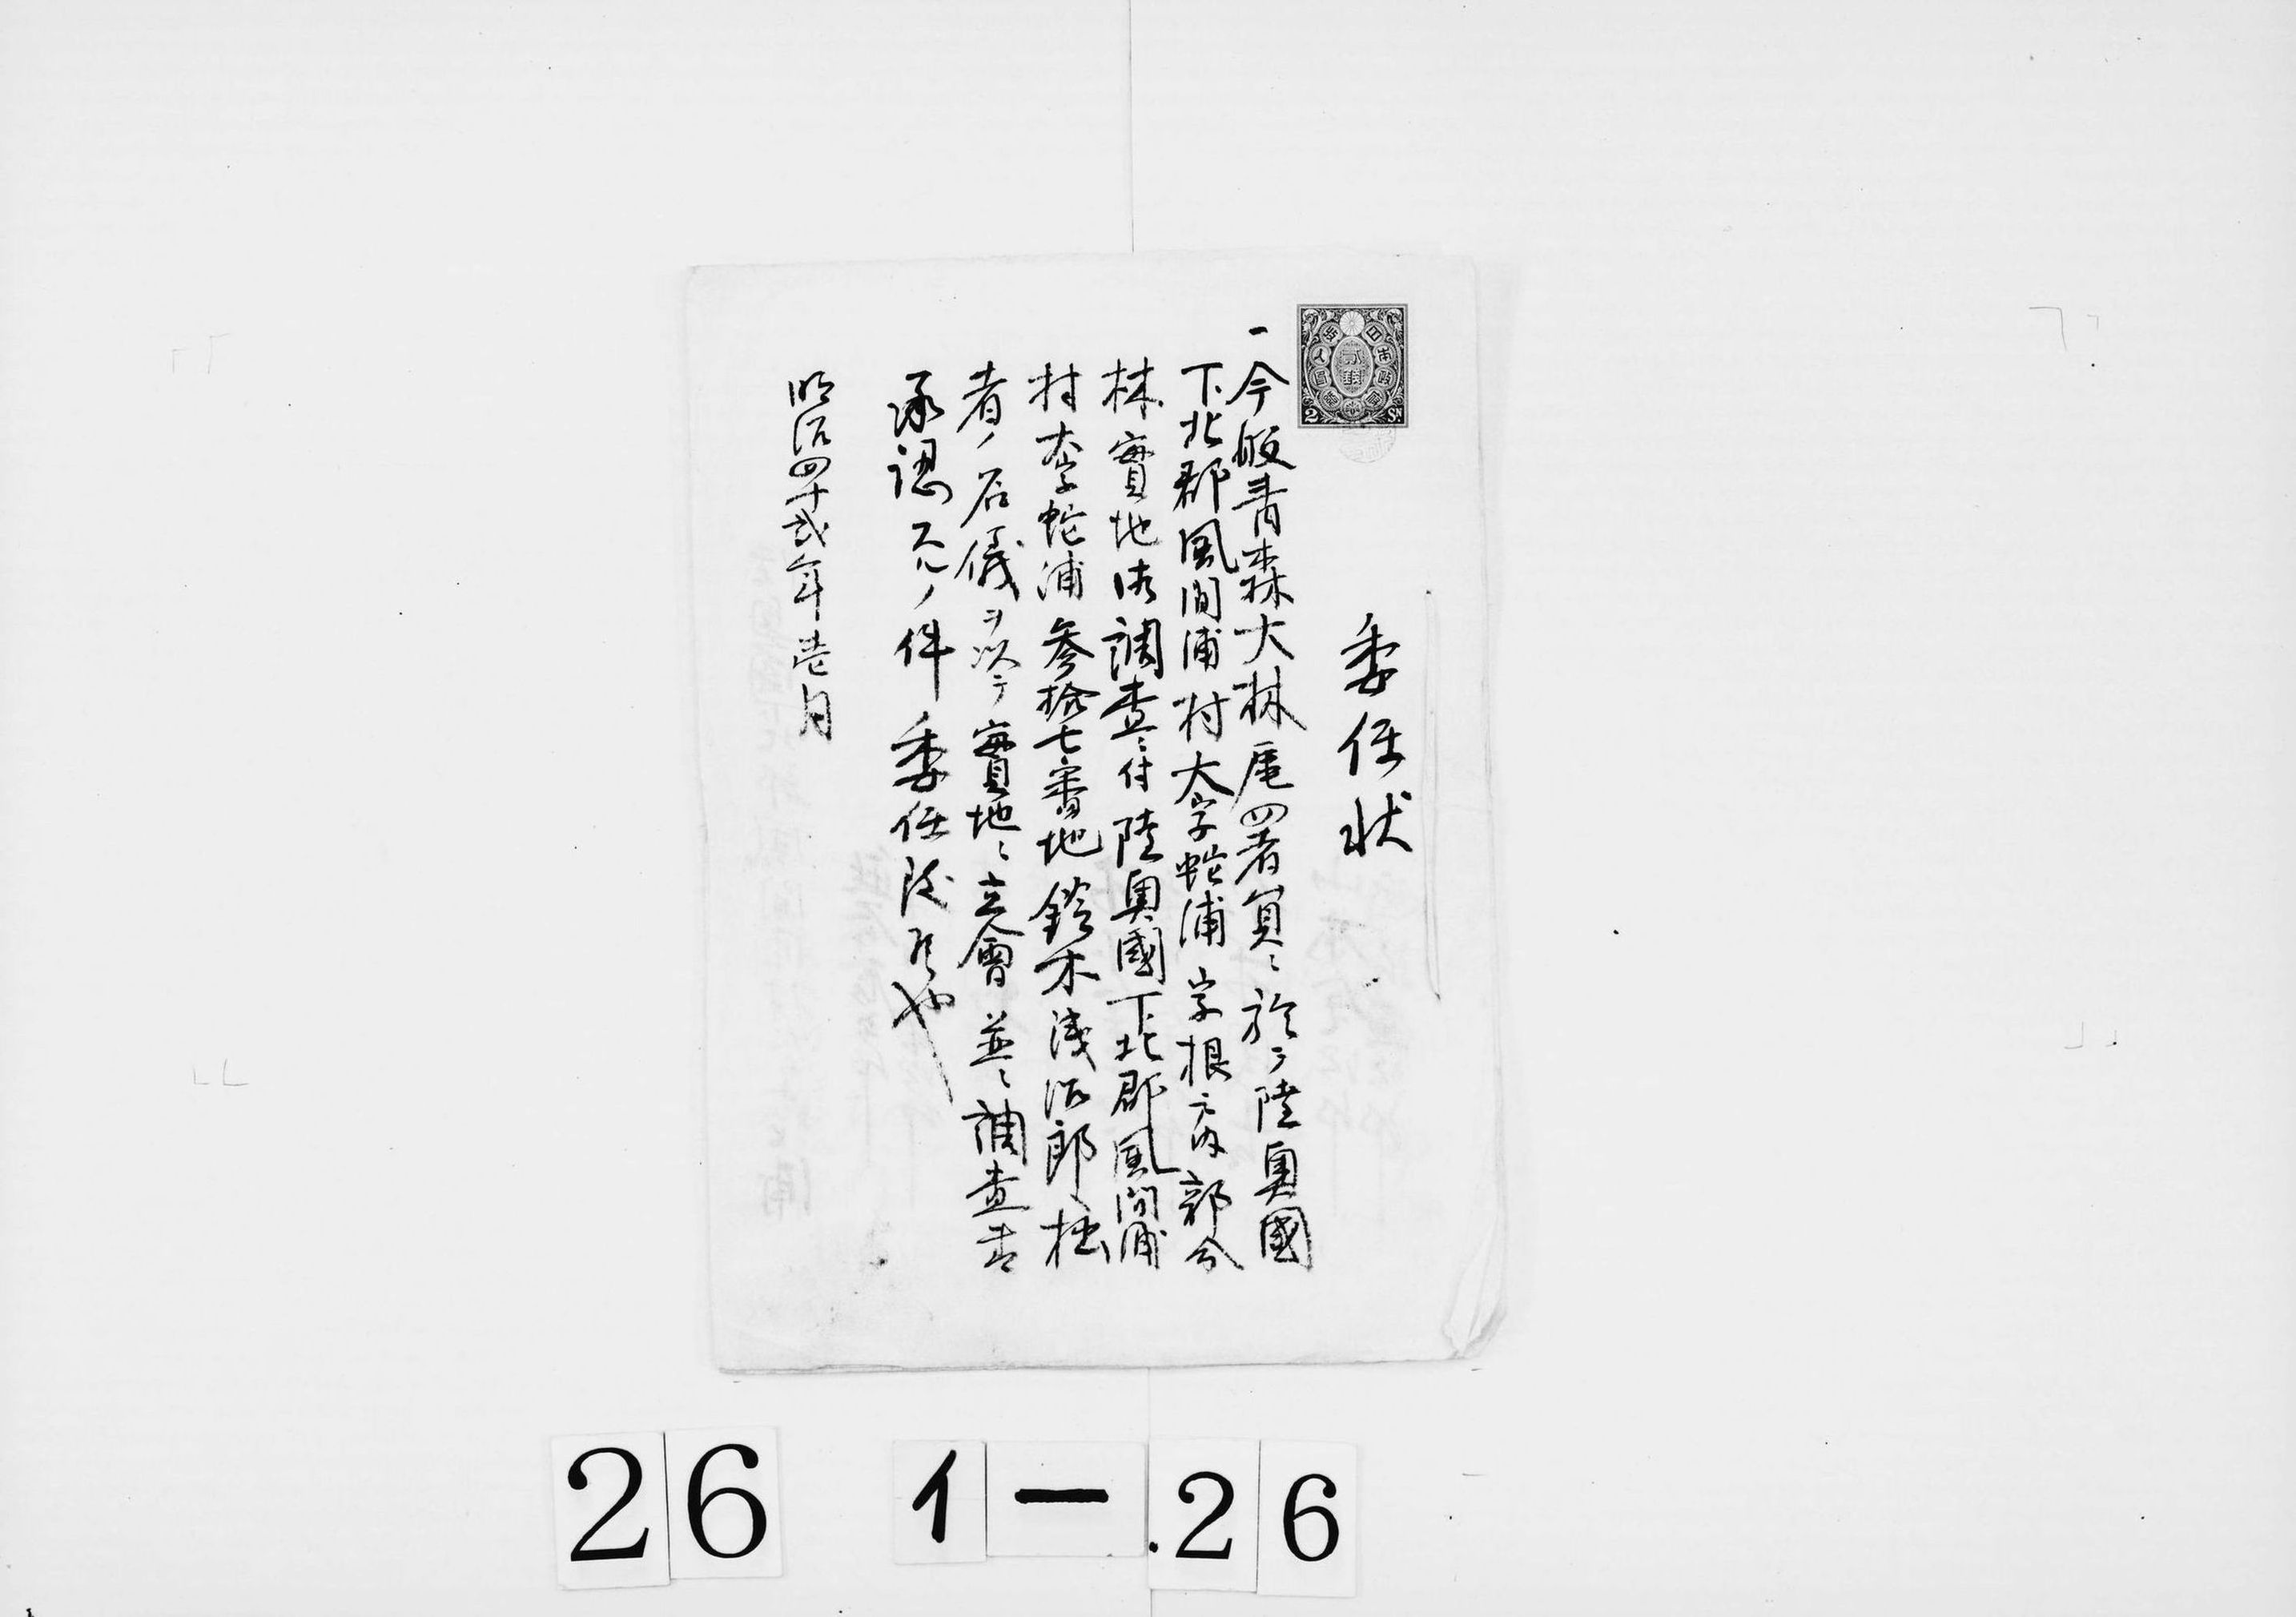 委任状
一今般青森大林區四署員ニ於テ陸奥國
下北郡風間浦村大字蛇浦字根ノ内部分
林實地御調査ニ付陸奥國下北郡風間浦
村大字蛇浦参拾七番地鈴木浅治郎拙
者ノ名儀ヲ以テ實地ニ立會並ニ調査書
承認スルノ件委任候也
明治四十貳年壱月
貳錢
2 Sn
26 イー26